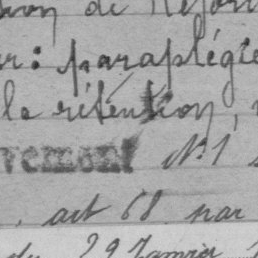 de Réfor
: paraplégie
la rétention,
vement N°1
, art 68 par
du 29 Janvier